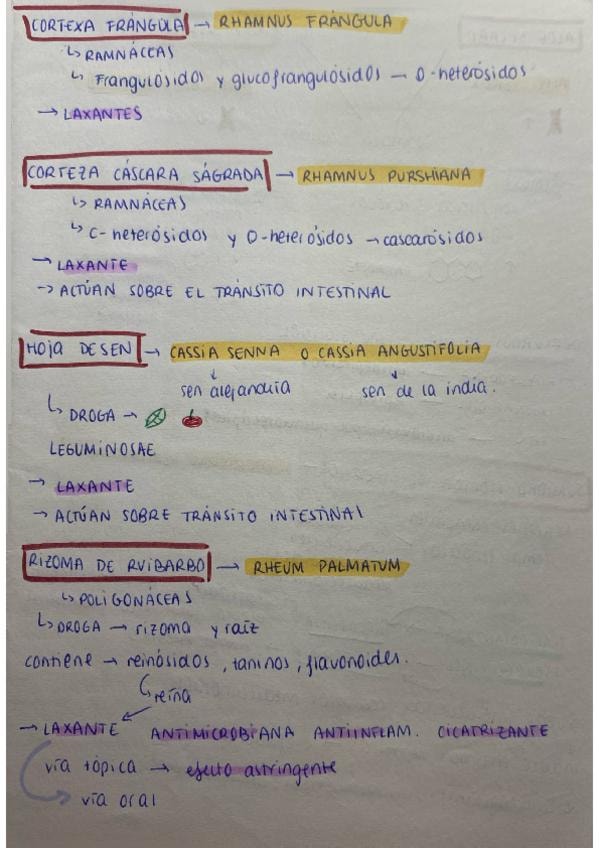 CORTEXA FRÁNGULA → RHAMNUS FRÁNGULA
↳ RAMNÁCEAS
↳ Frangulósidos y glucofrangulósidos — O-heterósidos
→ LAXANTES
CORTEZA CÁSCARA SÁGRADA → RHAMNUS PURSHIANA
↳ RAMNÁCEAS
↳ C-heterósidos y O-heterósidos → cascarósidos
→ LAXANTE
→ ACTÚAN SOBRE EL TRÁNSITO INTESTINAL
HOJA DE SEN → CASSIA SENNA O CASSIA ANGUSTIFOLIA
sen alejandria sen de la india.
↳ DROGA →
LEGUMINOSAE
→ LAXANTE
→ ACTÚAN SOBRE TRÁNSITO INTESTINAL
RIZOMA DE RUIBARBO → RHEUM PALMATUM
↳ POLIGONÁCEAS
↳ DROGA → rizoma y raíz
contiene → reinósidos, taninos, flavonoides.
reína
→ LAXANTE ANTIMICROBIANA ANTIINFLAM. CICATRIZANTE
vía tópica → efecto astringente
vía oral